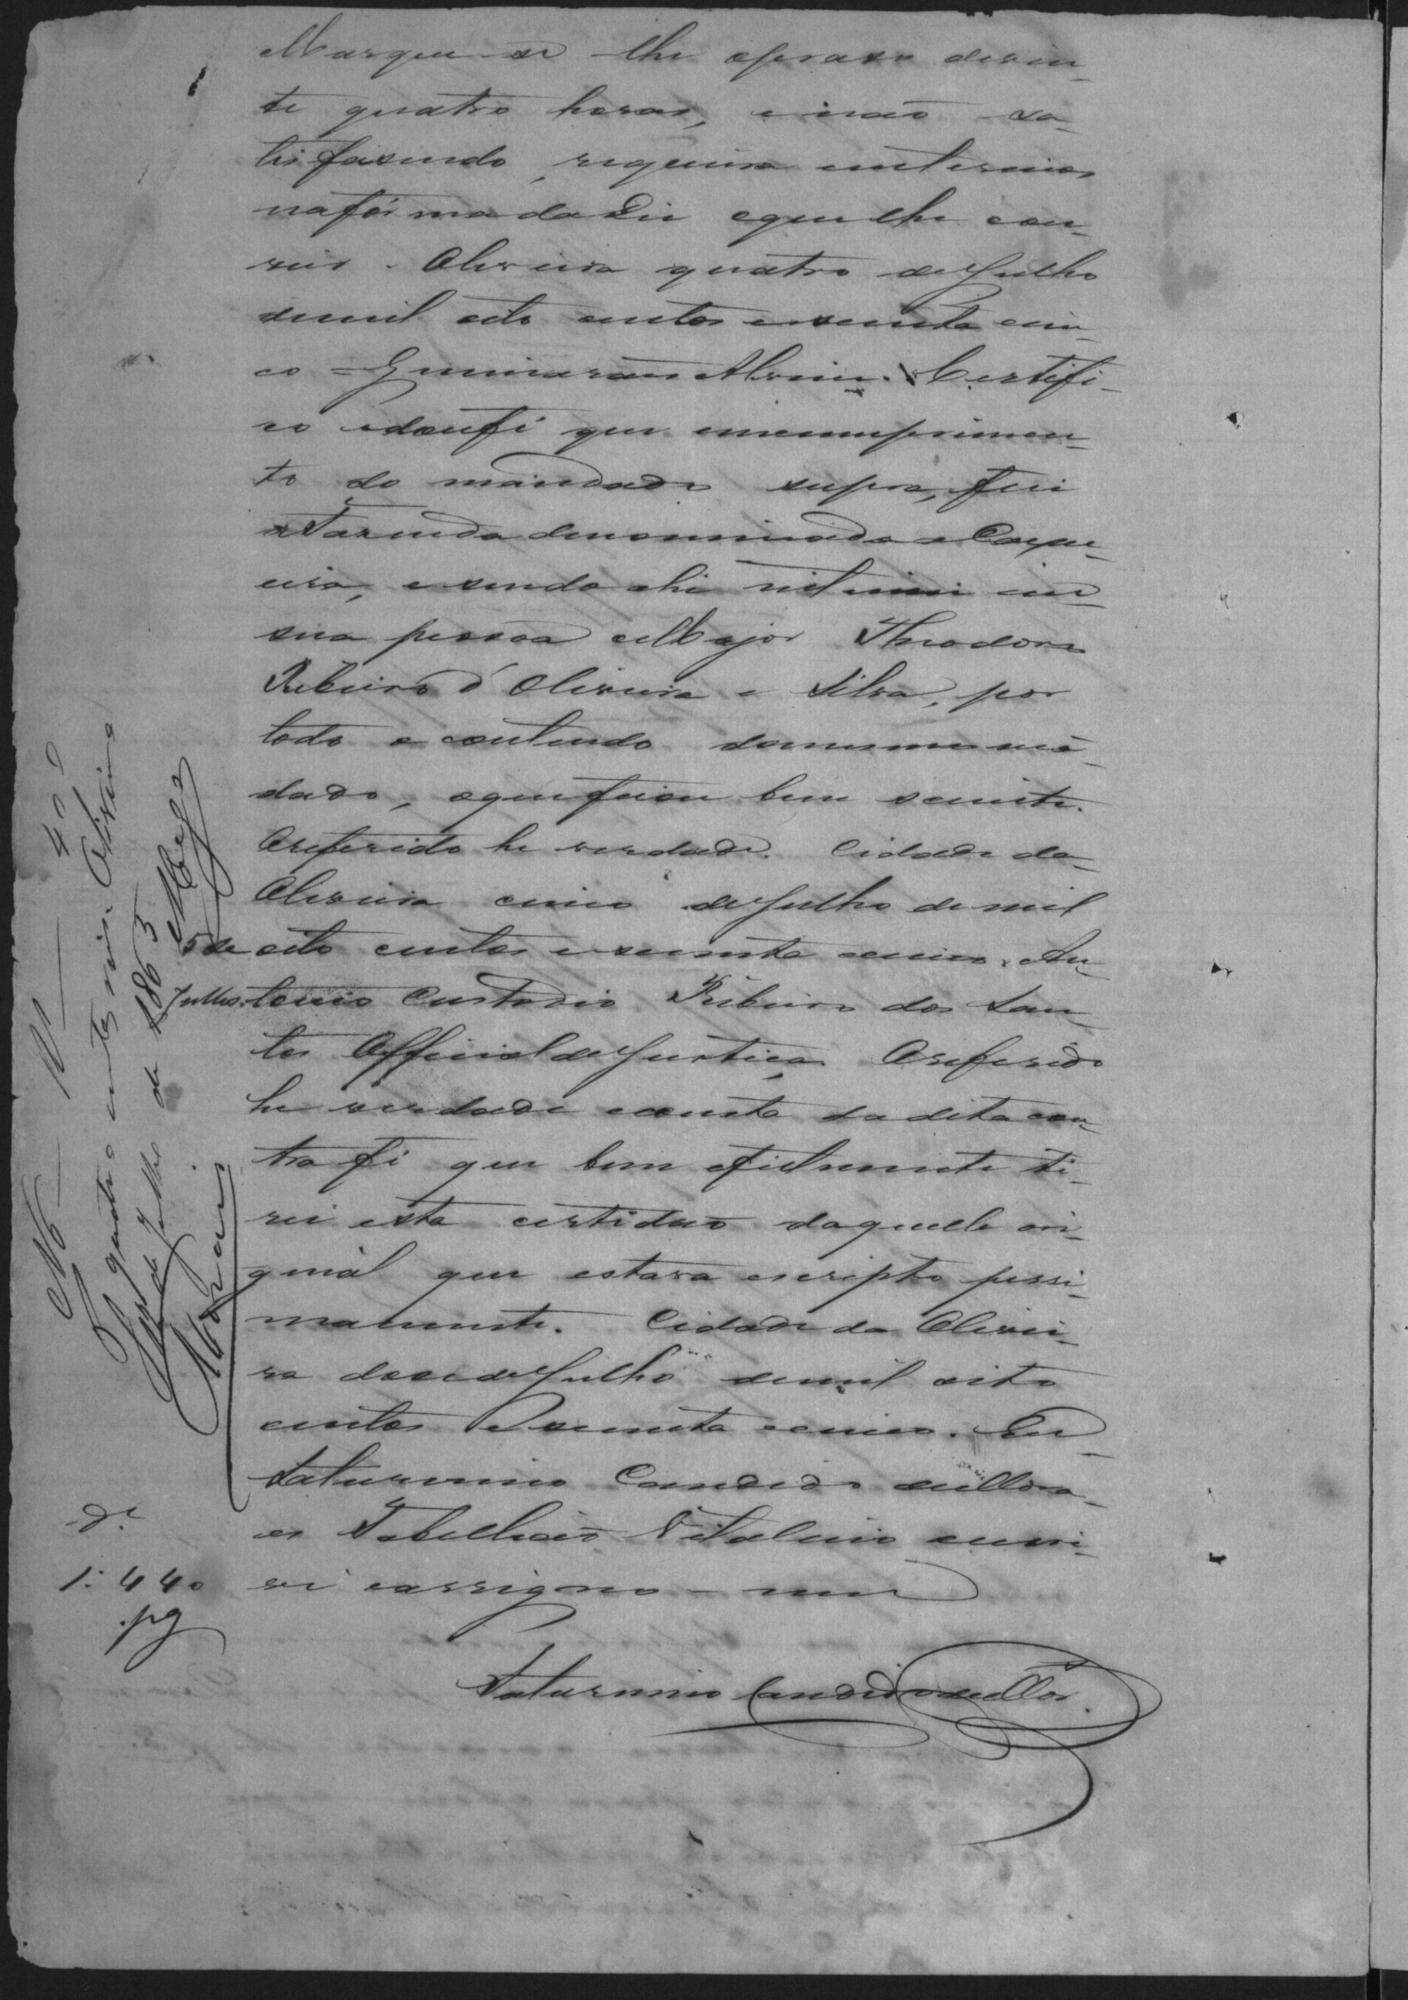 Marque-se lhe oprazo devin-
te quatro horas, e não sa-
tisfazendo, requeira
nafórma da Lei oque lhe con-
vier. Oliveira quatro deJulho
demil oito centos esecenta cin-
co = Guimaraens Alvim. Certifi-
co edoufé que emcumprimen-
to do mandado supra, fui
aFazenda denominada a Caxu-
eira, esendo ahi intimei em
sua pessoa oMajor Theodoro
Ribeiro d'Oliveira e Silva, por
todo o contendo domesmo mã-
dado, oqueficou bem sciente.
Oreferido he verdade. Cidade da
Oliveira cinco deJulho de mil
oito centos esecenta ecinco. An-
tonio Custodio Ribeiro dos San-
tos Official deJustiça. Oreferido
he verdade econsta da dita con-
tra fé que bem efielmente ti-
rei esta certidão daquelle ori-
ginal que estava escripto pessi-
mamente. Cidade da Olivei-
ra doze deJulho demil oito
centos esecenta ecinco. Eu
Saturnino Candido
Tabelliaõ Vitalicio escre-
vi eassigno-me
Saturnino Candido
Nº 1 400
Pg quatro centos reis Oliveira
5 de Julho de 1865
Moraes
1:440
pg